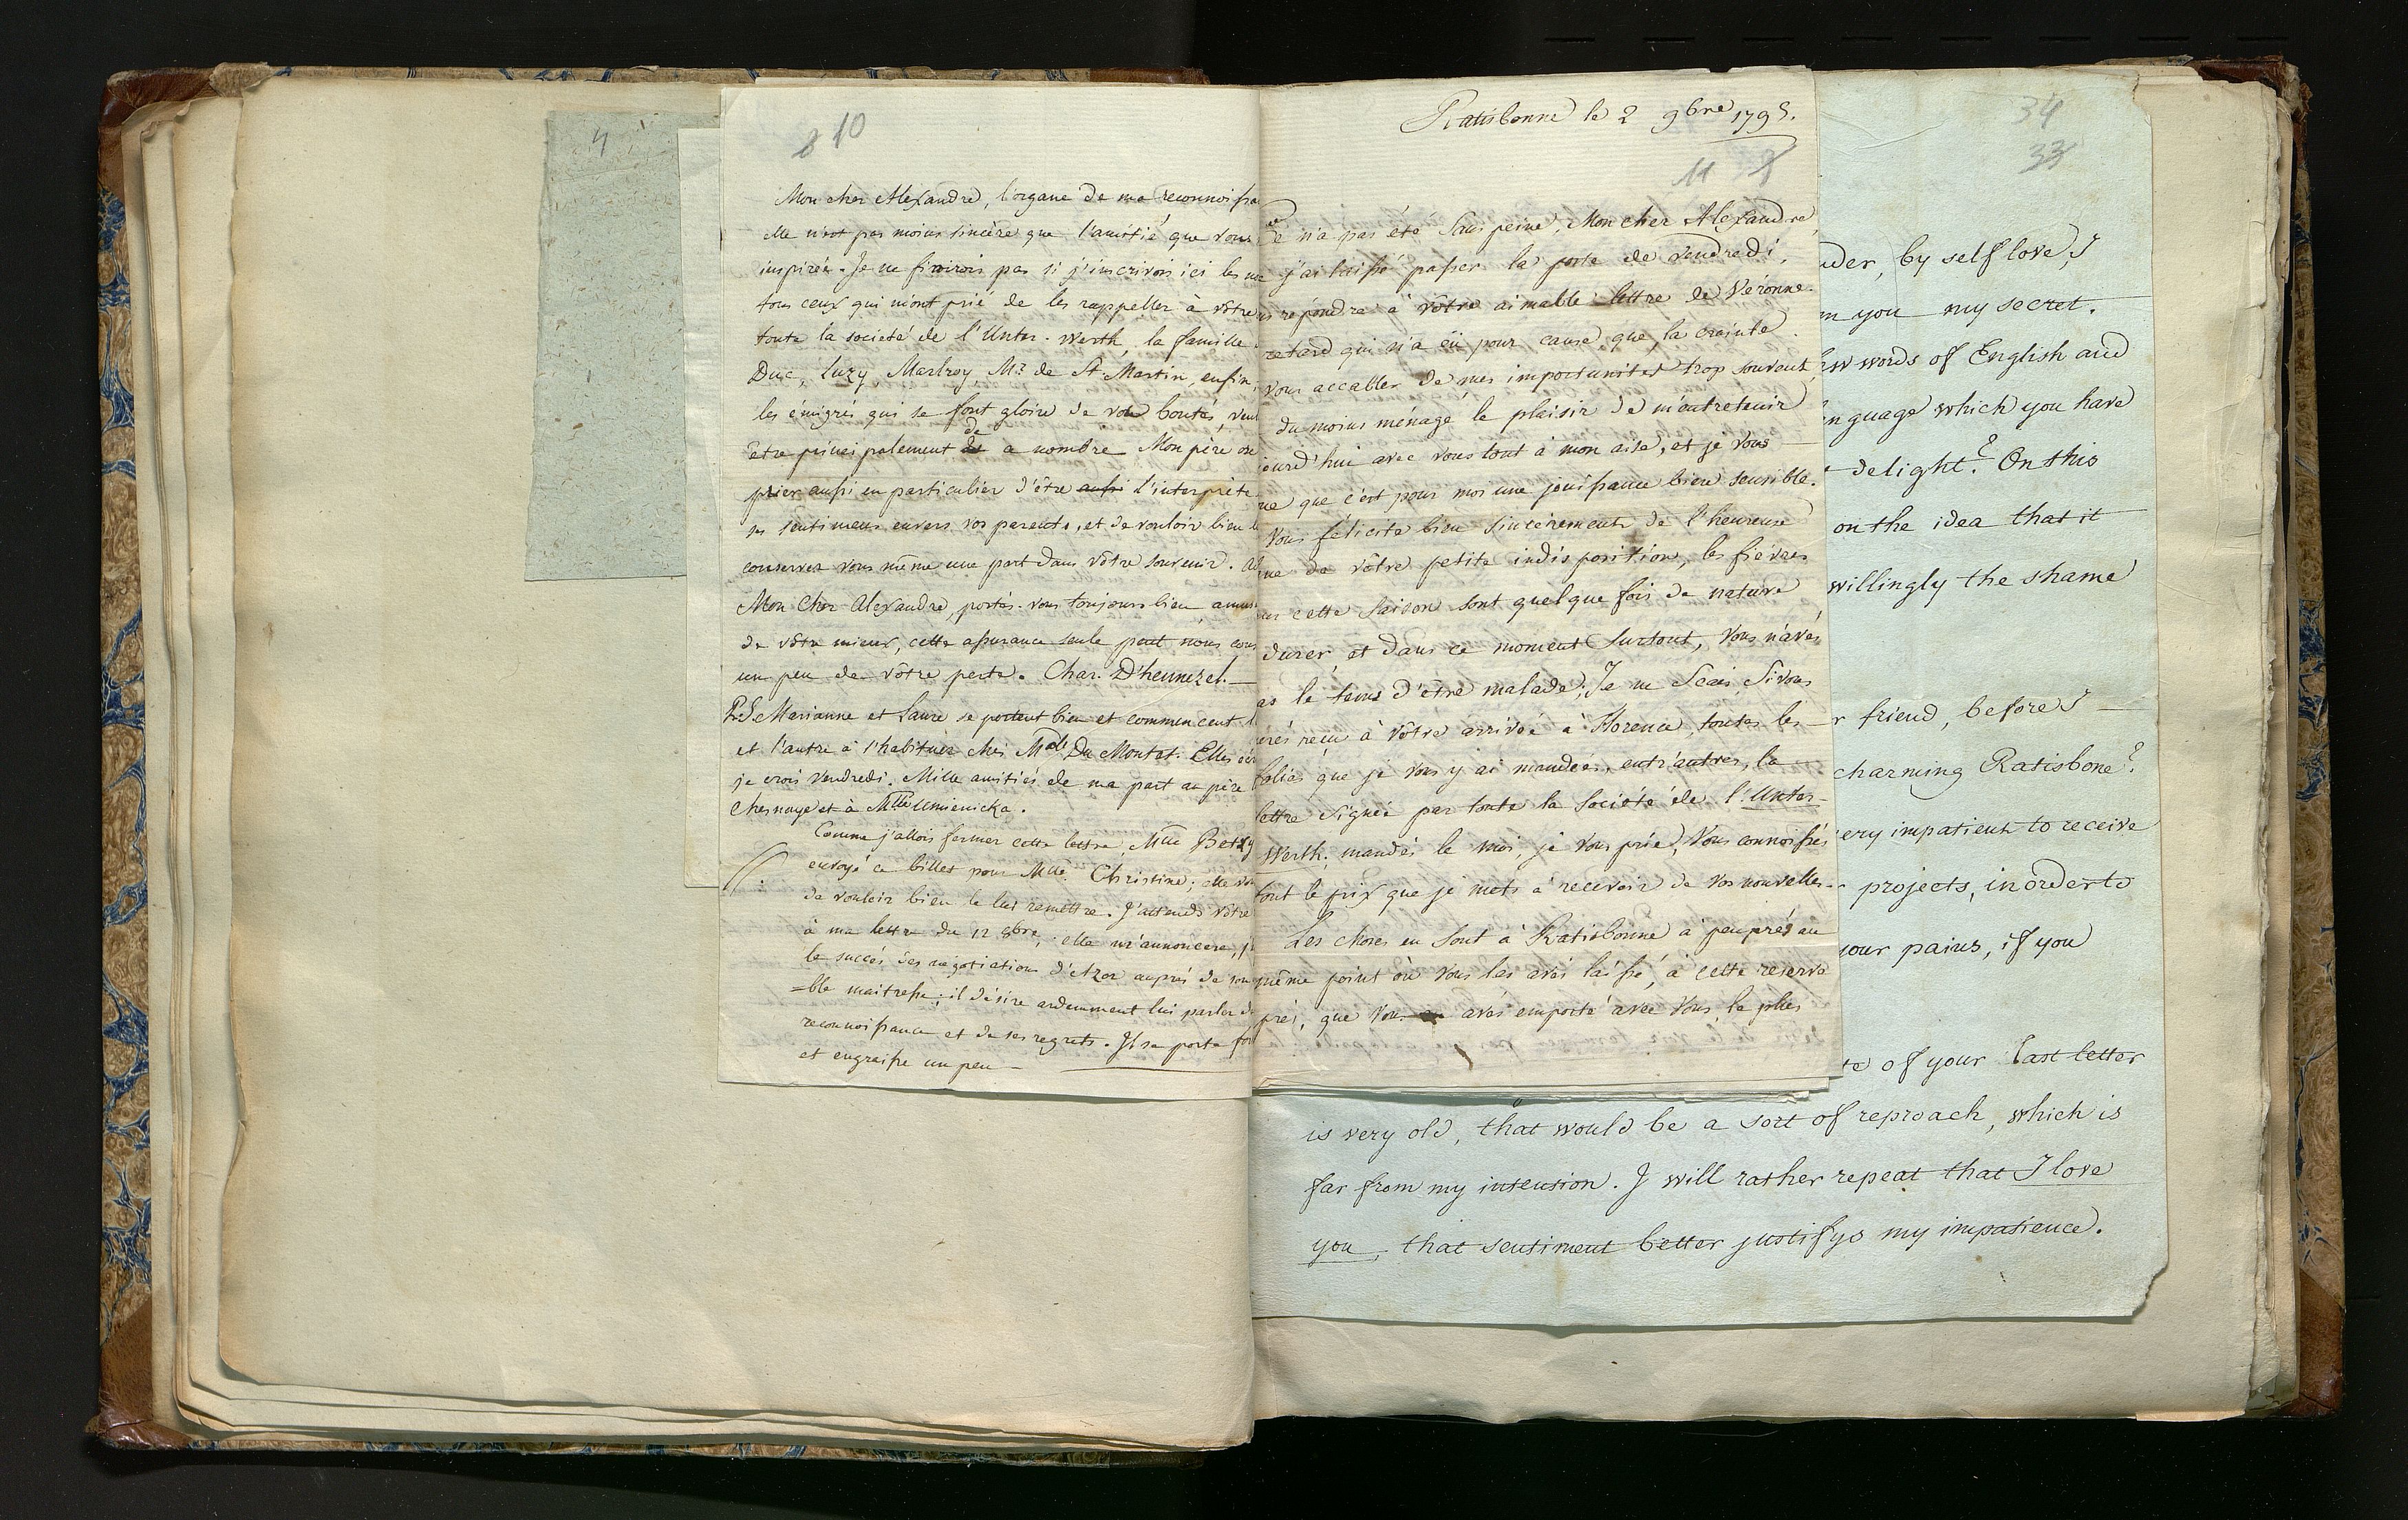 4
8 10
Mon cher Alexandre, l'organe de ma reconnoissa
elle n'est pas moins sincère que l'amitié que vous
inspirée. Je ne finirois pas si j'inscrivois ici les no
tous ceux qui m'ont prié de les rappeller à vôtre
toute la societé de l'Unter-Werth, la famille
Duc, Luzy, Marlroy Mr. de St Martin, enfin,
les émigrés qui se font gloire de vos bontés, veul
être principalement de ce nombre Mon père ose
prier aussi en particulier d'être aussi l'interprète
ses sentimens envers vos parents, et de vouloir bien l
conserver vous même une part dans vôtre souvenir. Ad
Mon cher Alexandre, portés-vous toujours bien amus
de vôtre mieux, cette assurance seule peut nous cons
un peu de vôtre perte. Char. D'hennezel.
P.S. Marianne et Laure se portent bien et commencent l
et l'autre à s'habituer chés Mde Du Montet. Elles écr
je crois Vendredi. Mille amitiés de ma part au père
Chesnaye et à Mlle Umienicka.
Comme j'allois fermer cette lettre, Mlle Betzy
envoyé ce billet pour Mlle Christine; elle vou
de vouloir bien le lui remettre. J'attends vôtre
à ma lettre du 12 8bre, elle m'annoncera, j'
le succés des négotiations d'Azor auprés de son
=ble maitresse; il désire ardemment lui parler de
reconnoissance et de ses regrets. Il se porte for
et engraisse un peu
Ratisbonne le 2 9bre 1795.
11 9
Ce n'a pas été sans peine, Mon cher Alexandre,
j'ai laissé passer la poste de vendredi,
répondre à vôtre aimable lettre de Véronne.
retard qui n'a eü pour cause que, la crainte
vous accabler de mes importunités trop souvent,
du moins ménagé le plaisir de m'entretenir
jourd'hui avec vous tout à mon aise, et je vous
ure que c'est pour moi une jouissance bien sensible.
Vous félicite bien sincèrement de l'heureuse
de vôtre petite indisposition, les fièvres
cette saison sont quelque fois de nature
durer, et dans ce moment surtout, vous n'avés
as le tems d'être malade; Je ne scais si vous
urés recu à vôtre arrivée à Florence, toutes les
folies que je vous y ai mandées, entr'autres, la
lettre signée par toute la Société de l'Unter-
Werth; mandés le moi, je vous prie, Vous connoissés
tout le prix que je mets à recevoir de vos nouvelles.
Les choses en sont à Ratisbonne à peu près au
même point où vous les avés laissé, à cette reserve
près, que vous avés emporté avec vous, le plus
34
33
nder, by self love, I
m you my secret.
ew words of English and
nguage which you have
delight? On this
on the idea that it
willingly the shame
r friend, before I
charming Ratisbone?
ery impatient to receive
projects, in order to
your pains, if you
te of your last letter
is very old, that would be a sort of reproach, which is
far from my intension. I will rather repeat that I love
you, that sentiment better justifys my impatience.